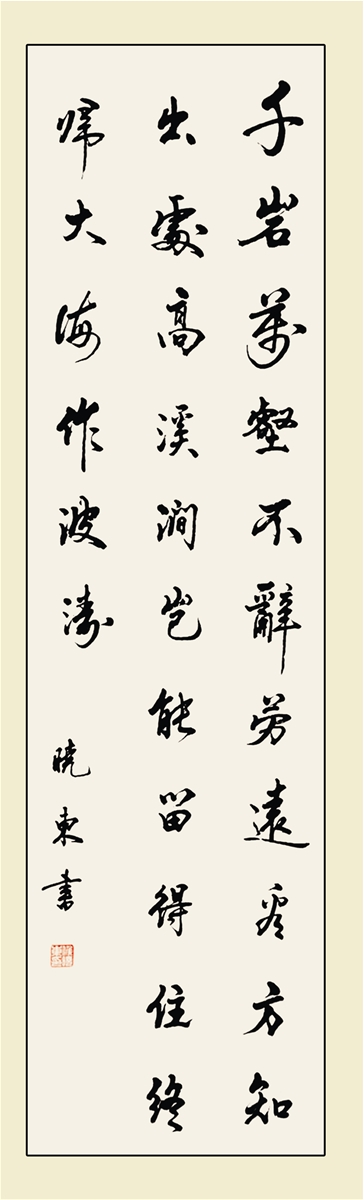 千岩萬壑不辭勞遠看方知
出處高溪澗岂能留得住終
歸大海作波濤
曉東書